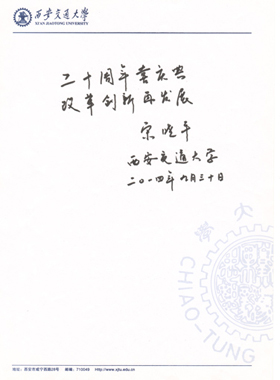 西安交通大学
XI'AN JIAOTONG UNIVERSITY
二十周年喜庆典
改革创新再发展
宋晓平
西安交通大学
二〇一四年九月三十日
大學
CHIAO-TUNG
地址：西安市咸宁西路28号 邮编：710049 http://www.xjtu.edu.cn